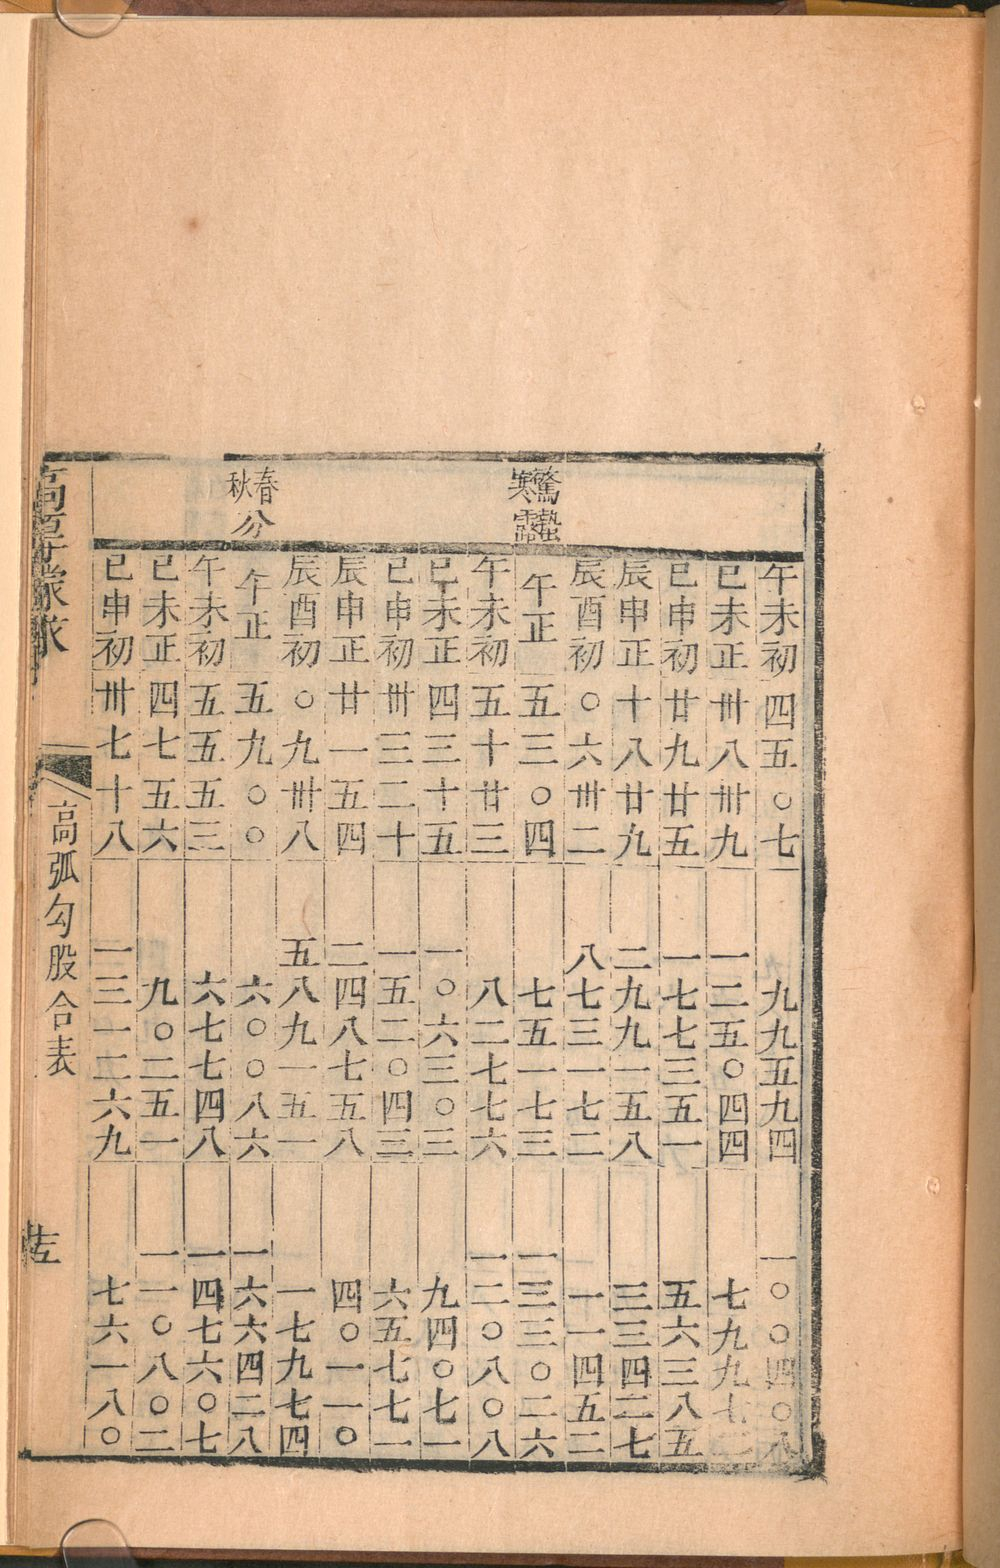 驚蟄
寒露
午未初四五〇七 九九五九四 一〇〇四〇八
巳未正卅八卅九 一二五〇四四 七九九七二
巳申初廿九廿五 一七七三五一 五六三八五
辰申正十八廿九 二九九一五八 三三四二七
辰酉初〇六卅二 八七三一七二 一一四五二
午正五三〇四 七五一七三 一三三〇二六
午未初五十廿三 八二七七六 一二〇八〇八
巳未正四三十五 一〇六三〇三 九四〇七一
巳申初卅三二十 一五二〇四三 六五七七一
辰申正廿一五四 二四八七五八 四〇一一〇
辰酉初〇九卅八 五八九一五一 一七九七四
春秋分
午正五九〇〇 六〇〇八六 一六六四二八
午未初五五五三 六七七四八 一四七六〇七
巳未正四七五六 九〇二五一 一一〇八〇二
巳申初卅七十八 一三一二六九 七六一八〇
高厚蒙求
高弧勾股合表